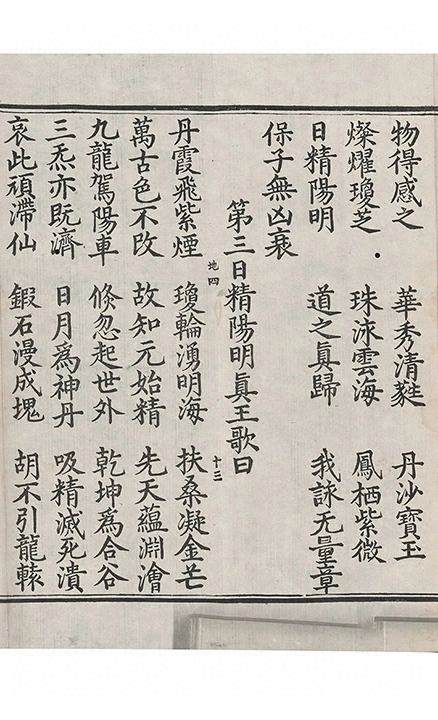 物得感之　華秀清蕤　丹沙寶玉
燦燿瓊芝　珠泳雲海　鳳栖紫微
日精陽明　道之眞歸　我詠无量章
保子無凶衰
第三日精陽明眞王歌曰
地四　十三
丹霞飛紫煙　瓊輪湧明海　扶桑凝金芒
萬古色不改　故知元始精　先天蘊淵澮
九龍駕陽車　倏忽起世外　乾坤爲合谷
三炁亦既濟　日月爲神丹　吸精滅死潰
哀此頑滯仙　鍜石漫成塊　胡不引龍轅